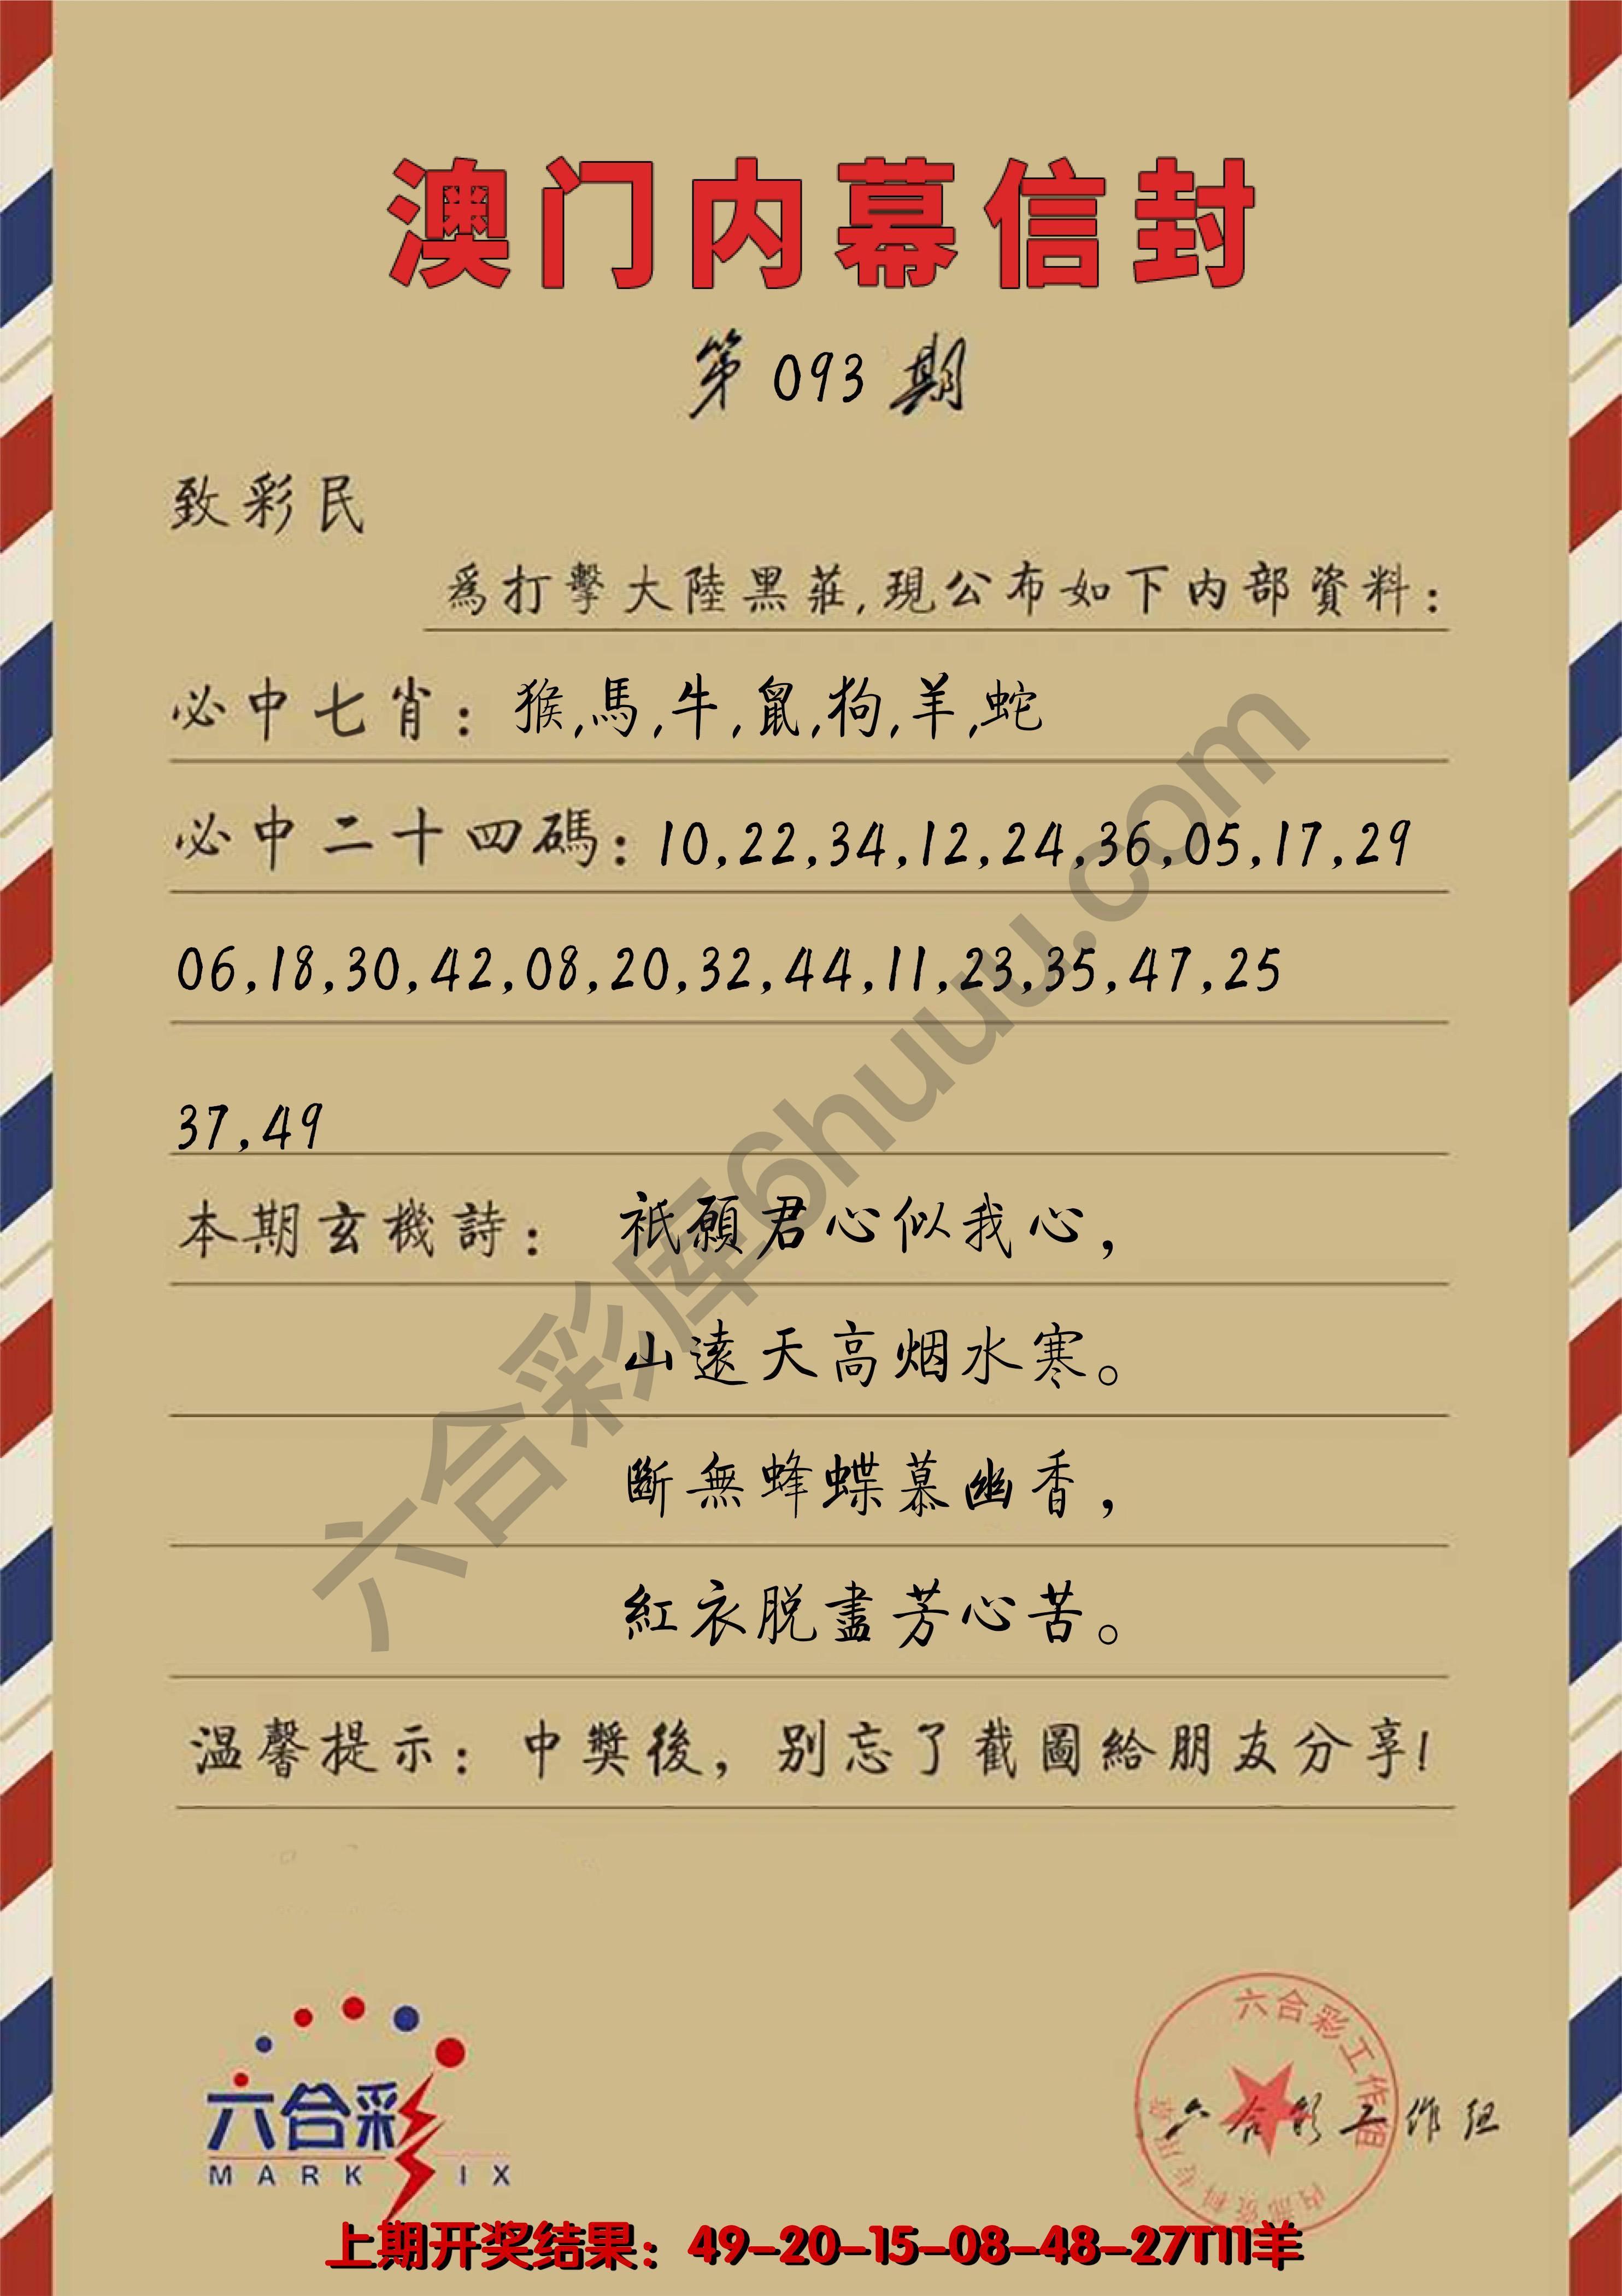 澳门内幕信封
第093期
致彩民
為打擊大陸黑莊,現公布如下内部資料:
必中七肖: 猴,馬,牛,鼠,狗,羊,蛇
必中二十四碼: 10,22,34,12,24,36,05,17,29
06,18,30,42,08,20,32,44,11,23,35,47,25
37,49
本期玄機詩: 祇願君心似我心,
山遠天高烟水寒。
斷無蜂蝶慕幽香,
紅衣脱盡芳心苦。
温馨提示: 中獎後, 别忘了截圖給朋友分享!
六合彩库6huuu.com
六合彩
MARK IX
六合彩工作组
六合彩工作组
上期开奖结果: 49-20-15-08-48-27T11羊